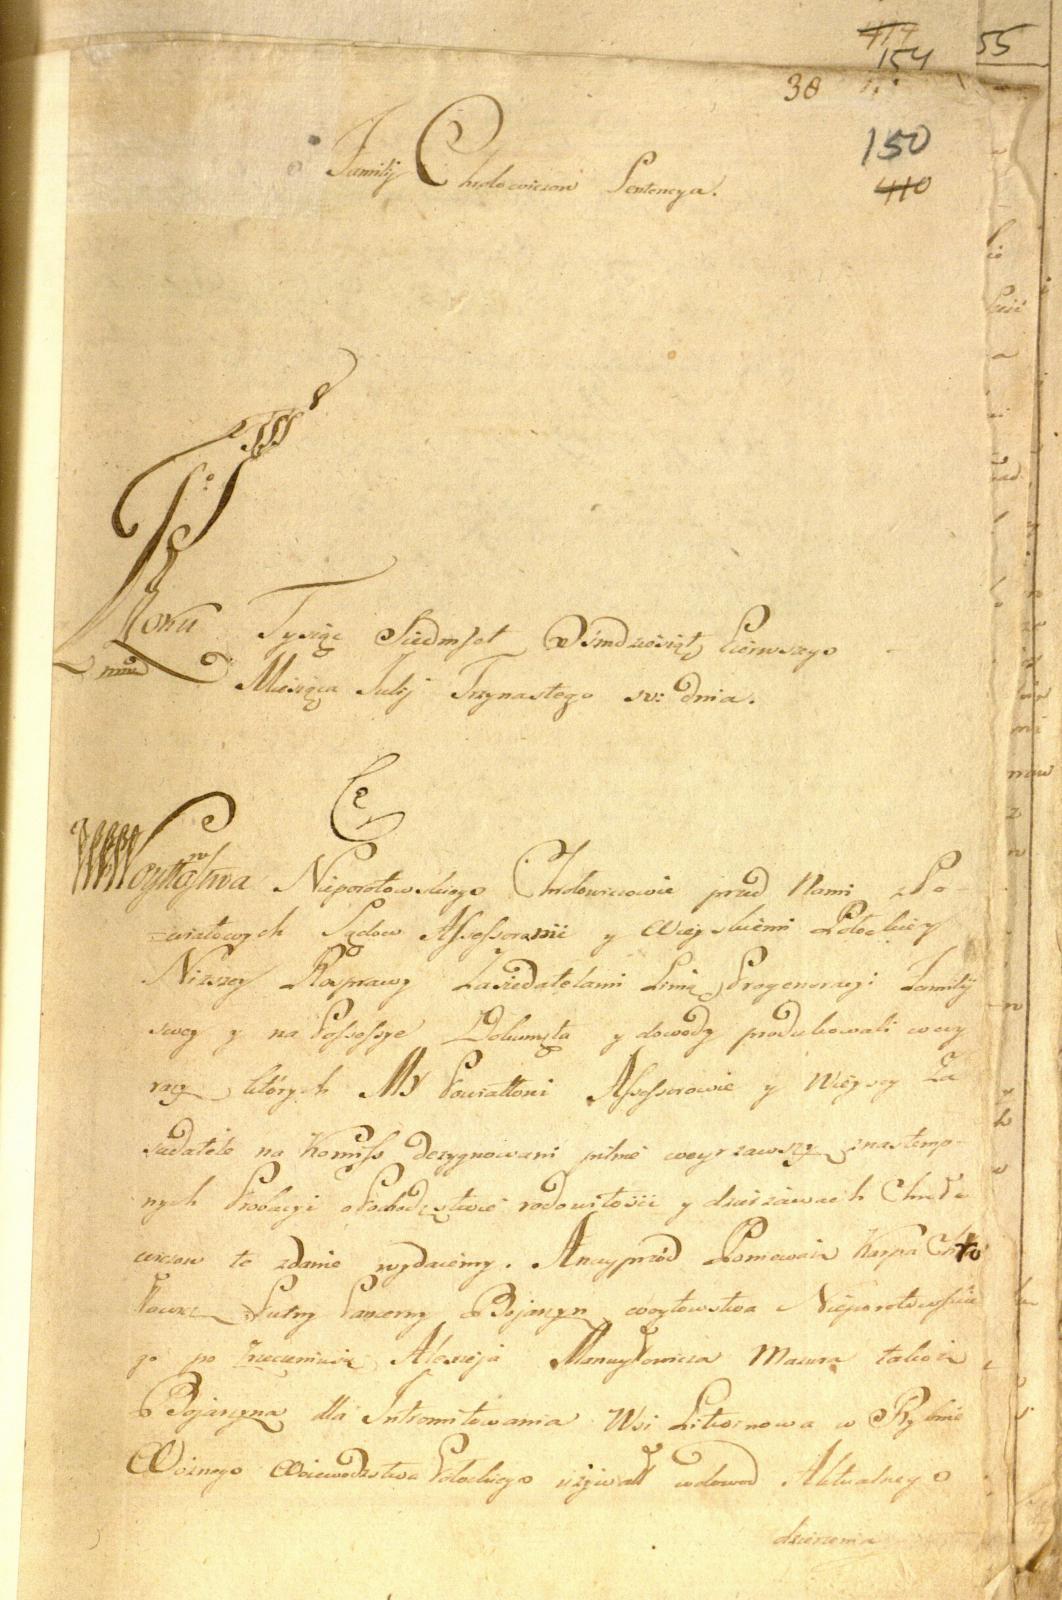 417
154
55
38
150
410
Familij Chodowiczow Sentencya.
Roku Tysiąc Siedmset Ośmdziesiąt Pierwszego
Miesiąca Julij Trzynastego sv: dnia.
Woytostwa Nieporotowskiego Chodowiczowie przed Nami z Po-
wiatowych Sądow Assessorami y Wieyskiemi Połockiey
Nizszey Rosprawy Zasiedatelami Linią Progeneracyi Familij
swey y na Possessye Dokumęta y dowody produkowali w czy
racz których My Powiattoni Assessorowie y Wieyscy Za
siedatele na Komiss dezygnowani pilnie weyrzawszy znastempo-
nych Probacyi o Pochodzęstwie rodowitości y dzierżawach Chodo
wiczow te zdanie wydaiemy. A nayprzód Ponieważ Karp Cho
Putny Pancerny Bojaryn woytowstwa Nieporotowskie
go po zrzeczeniu się Alexieja Manuyłowicza Mazura takoż
Bojaryna dla Intromitowania Wsi Litwinowa w Rybnie
Woznego Woiewodztwa Połockiego używał w dowod Aktualnego
dzierzenia